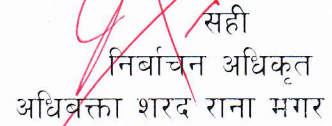 सही
निर्बाचन अधिकृत
अधिबक्ता शरद राना मगर